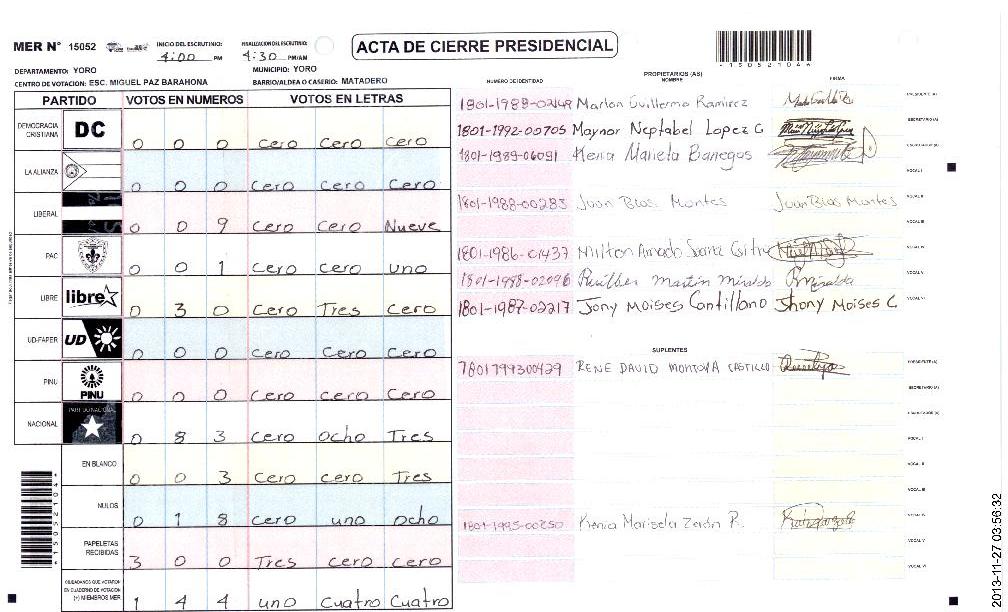 MER N° 15052
INICIO DEL ESCRUTINIO: 4:00 PM
FINALIZACION DEL ESCRUTINIO: 4:30 PM/AM
ACTA DE CIERRE PRESIDENCIAL
DEPARTAMENTO: YORO
MUNICIPIO: YORO
CENTRO DE VOTACION: ESC. MIGUEL PAZ BARAHONA
BARRIO/ALDEA O CASERIO: MATADERO
PARTIDO VOTOS EN NUMEROS VOTOS EN LETRAS
DEMOCRACIA CRISTIANA DC 0 0 0 Cero Cero Cero
LA ALIANZA 0 0 0 Cero Cero Cero
LIBERAL 0 0 9 Cero Cero Nueve
PAC 0 0 1 Cero Cero uno
LIBRE libre 0 3 0 Cero Tres Cero
UD-FAPER UD 0 0 0 Cero Cero Cero
PINU PINU 0 0 0 Cero Cero Cero
NACIONAL PARTIDO NACIONAL 0 8 3 Cero ocho Tres
EN BLANCO 0 0 3 Cero Cero Tres
NULOS 0 1 8 Cero uno ocho
PAPELETAS RECIBIDAS 3 0 0 Tres cero cero
CIUDADANOS QUE VOTARON EN CUADERNO DE VOTACION (+) MIEMBROS MER 1 4 4 uno Cuatro Cuatro
PROPIETARIOS (AS)
NUMERO DE IDENTIDAD NOMBRE FIRMA
Marlon Guillermo Ramirez PRESIDENTE (A)
1801-1992-00705 Maynor Neptabel Lopez C SECRETARIO (A)
1801-1989-06091 Kenia Mariela Banegas ESCRUTADOR (A)
VOCAL I
1801-1988-00283 Juan Blas Montes Juan Blas Montes VOCAL II
VOCAL III
1801-1986-01437 Milton Amado VOCAL IV
1801-1998-02096 Martin VOCAL V
1801-1987-02217 Jony Moises Cantillano Jhony Moises C VOCAL VI
SUPLENTES
7801799300429 RENE DAVID MONTOYA CASTILLO PRESIDENTE (A)
SECRETARIO (A)
ESCRUTADOR (A)
VOCAL I
VOCAL II
VOCAL III
1801-1995-00250 Kenia Marisela R. VOCAL IV
VOCAL V
VOCAL VI
2013-11-27 03:56:32